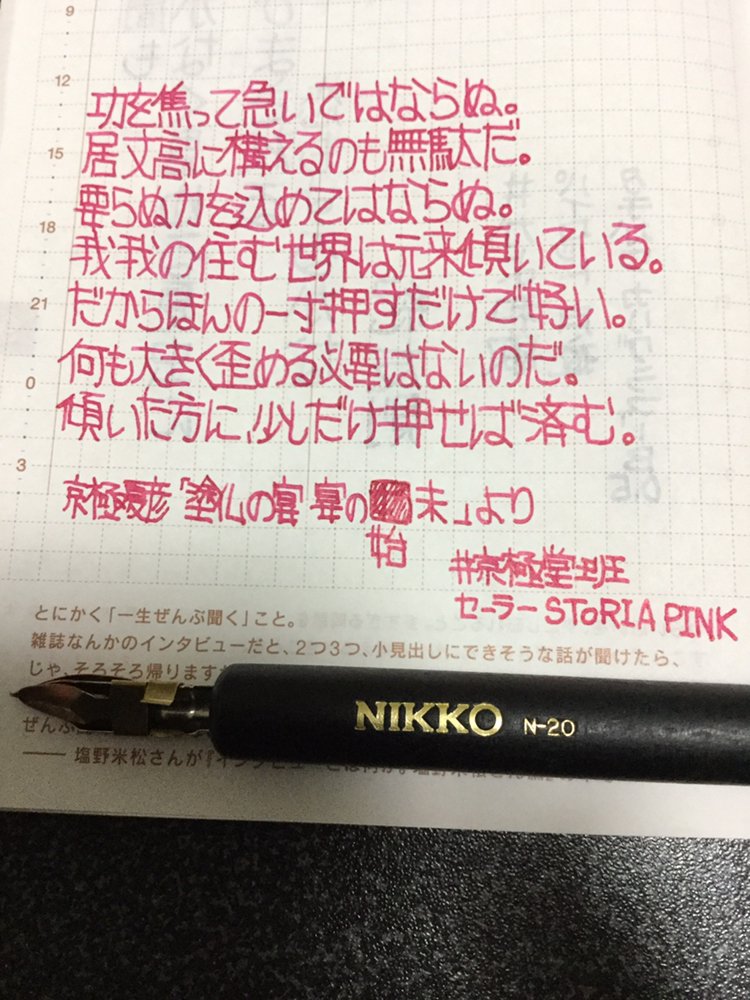 9
12
15
18
21
0
3
功を焦って急いではならぬ。
居丈高に構えるのも無駄だ。
要らぬ力を込めてはならぬ。
我我の住む世界は元来傾いている。
だからほんの一寸押すだけで好い。
何も大きく歪める必要はないのだ。
傾いた方に、少しだけ押せば済む。
京極夏彦「塗仏の宴 宴の 未」より
始
#京極堂班
セーラー SToRIA PINK
とにかく「一生ぜんぶ聞く」こと。
雑誌なんかのインタビューだと、2つ3つ、小見出しにできそうな話が聞けたら、
じゃ、そろそろ帰ります
ぜんぶ
── 塩野米松さんが『イン
NIKKO N-20